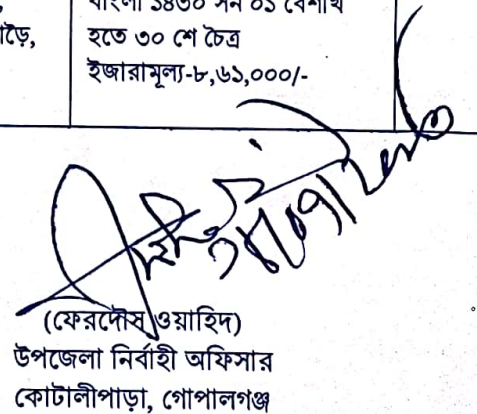 বাংলা ১৪৩০ সন ০১ বৈশাখ
হতে ৩০ শে চৈত্র
ইজারামূল্য-৮,৬১,০০০/-
(ফেরদৌস ওয়াহিদ)
উপজেলা নির্বাহী অফিসার
কোটালীপাড়া, গোপালগঞ্জ